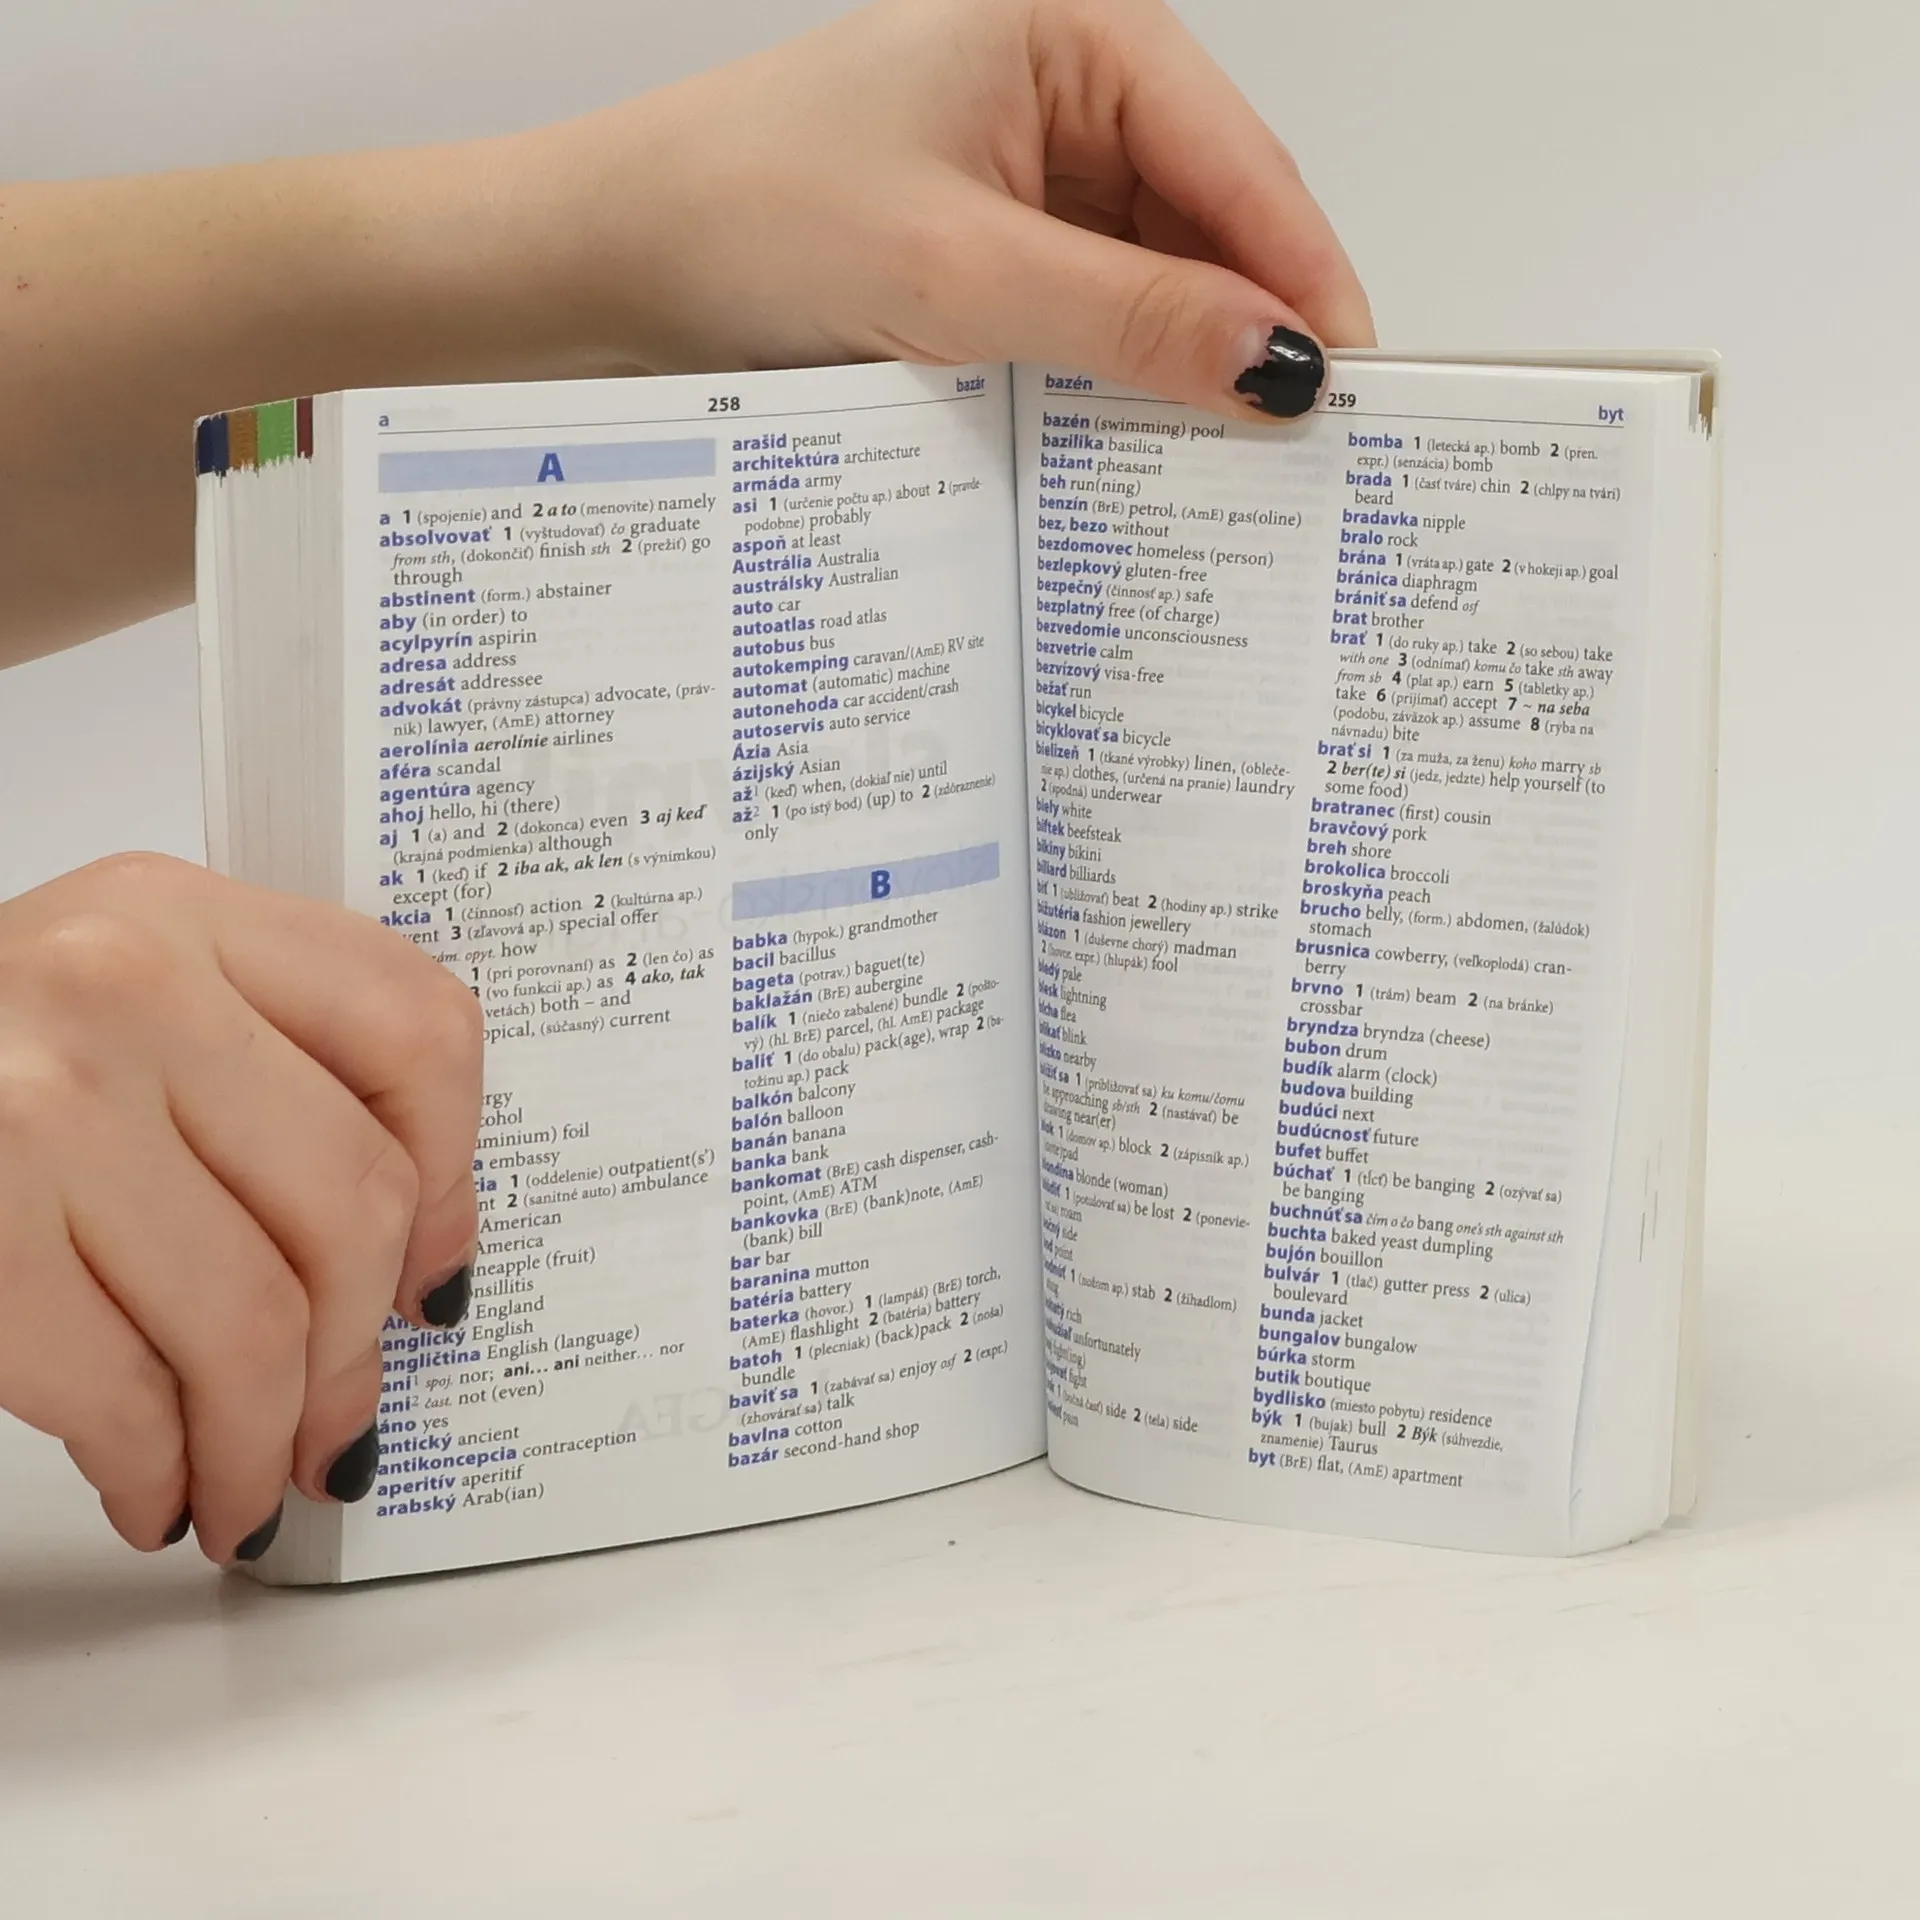 a 258 bazár
A
a 1 (spojenie) and 2 a to (menovite) namely
absolvovať 1 (vyštudovať) čo graduate
from sth, (dokončiť) finish sth 2 (prežiť) go
through
abstinent (form.) abstainer
aby (in order) to
acylpyrín aspirin
adresa address
adresát addressee
advokát (právny zástupca) advocate, (práv-
nik) lawyer, (AmE) attorney
aerolínia aerolínie airlines
aféra scandal
agentúra agency
ahoj hello, hi (there)
aj 1 (a) and 2 (dokonca) even 3 aj keď
(krajná podmienka) although
ak 1 (keď) if 2 iba ak, ak len (s výnimkou)
except (for)
akcia 1 (činnosť) action 2 (kultúrna ap.)
3 (zľavová ap.) special offer
opyt. how
1 (pri porovnaní) as 2 (len čo) as
(vo funkcii ap.) as 4 ako, tak
both – and
(súčasný) current
foil
embassy
1 (oddelenie) outpatient(s')
2 (sanitné auto) ambulance
American
America
(fruit)
England
anglický English
angličtina English (language)
ani1 spoj. nor; ani... ani neither... nor
ani2 čast. not (even)
áno yes
antický ancient
antikoncepcia contraception
aperitív aperitif
arabský Arab(ian)
arašid peanut
architektúra architecture
armáda army
asi 1 (určenie počtu ap.) about 2 (pravde-
podobne) probably
aspoň at least
Austrália Australia
austrálsky Australian
auto car
autoatlas road atlas
autobus bus
autokemping caravan/(AmE) RV site
automat (automatic) machine
autonehoda car accident/crash
autoservis auto service
Ázia Asia
ázijský Asian
až1 (keď) when, (dokiaľ nie) until
až2 1 (po istý bod) (up) to 2 (zdôraznenie)
only
B
babka (hypok.) grandmother
bacil bacillus
bageta (potrav.) baguet(te)
baklažán (BrE) aubergine
balík 1 (niečo zabalené) bundle 2 (pošto-
vý) (hl. BrE) parcel, (hl. AmE) package
baliť 1 (do obalu) pack(age), wrap 2 (ba-
tožinu ap.) pack
balkón balcony
balón balloon
banán banana
banka bank
bankomat (BrE) cash dispenser, cash-
point, (AmE) ATM
bankovka (BrE) (bank)note, (AmE)
(bank) bill
bar bar
baranina mutton
batéria battery
baterka (hovor.) 1 (lampáš) (BrE) torch,
(AmE) flashlight 2 (batéria) battery
batoh 1 (plecniak) (back)pack 2 (noša)
bundle
baviť sa 1 (zabávať sa) enjoy osf 2 (expr.)
(zhovárať sa) talk
bavlna cotton
bazár second-hand shop
bazén 259 byt
bazén (swimming) pool
bazilika basilica
bažant pheasant
beh run(ning)
benzín (BrE) petrol, (AmE) gas(oline)
bez, bezo without
bezdomovec homeless (person)
bezlepkový gluten-free
bezpečný (činnosť ap.) safe
bezplatný free (of charge)
bezvedomie unconsciousness
bezvetrie calm
bezvízový visa-free
bežať run
bicykel bicycle
bicyklovať sa bicycle
bielizeň 1 (tkané výrobky) linen, (obleče-
nie ap.) clothes, (určená na pranie) laundry
2 (spodná) underwear
biely white
biftek beefsteak
bikiny bikini
biliard billiards
biť 1 (ubližovať) beat 2 (hodiny ap.) strike
bižutéria fashion jewellery
blázon 1 (duševne chorý) madman
2 (hovor. expr.) (hlupák) fool
bledý pale
blesk lightning
blcha flea
blikať blink
blízko nearby
blížiť sa 1 (približovať sa) ku komu/čomu
be approaching sb/sth 2 (nastávať) be
drawing near(er)
blok 1 (domov ap.) block 2 (zápisník ap.)
blondína blonde (woman)
1 (potulovať sa) be lost 2 (ponevie-
roam
side
point
1 (nožom ap.) stab 2 (žihadlom)
rich
unfortunately
fight
1 (bočná časť) side 2 (tela) side
pain
bomba 1 (letecká ap.) bomb 2 (pren.
expr.) (senzácia) bomb
brada 1 (časť tváre) chin 2 (chlpy na tvári)
beard
bradavka nipple
bralo rock
brána 1 (vráta ap.) gate 2 (v hokeji ap.) goal
bránica diaphragm
brániť sa defend osf
brat brother
brať 1 (do ruky ap.) take 2 (so sebou) take
with one 3 (odnímať) komu čo take sth away
from sb 4 (plat ap.) earn 5 (tabletky ap.)
take 6 (prijímať) accept 7 ~ na seba
(podobu, záväzok ap.) assume 8 (ryba na
návnadu) bite
brať si 1 (za muža, za ženu) koho marry sb
2 ber(te) si (jedz, jedzte) help yourself (to
some food)
bratranec (first) cousin
bravčový pork
breh shore
brokolica broccoli
broskyňa peach
brucho belly, (form.) abdomen, (žalúdok)
stomach
brusnica cowberry, (veľkoplodá) cran-
berry
brvno 1 (trám) beam 2 (na bránke)
crossbar
bryndza bryndza (cheese)
bubon drum
budík alarm (clock)
budova building
budúci next
budúcnosť future
bufet buffet
búchať 1 (tĺcť) be banging 2 (ozývať sa)
be banging
buchnúť sa čím o čo bang one's sth against sth
buchta baked yeast dumpling
bujón bouillon
bulvár 1 (tlač) gutter press 2 (ulica)
boulevard
bunda jacket
bungalov bungalow
búrka storm
butik boutique
bydlisko (miesto pobytu) residence
býk 1 (bujak) bull 2 Býk (súhvezdie,
znamenie) Taurus
byt (BrE) flat, (AmE) apartment